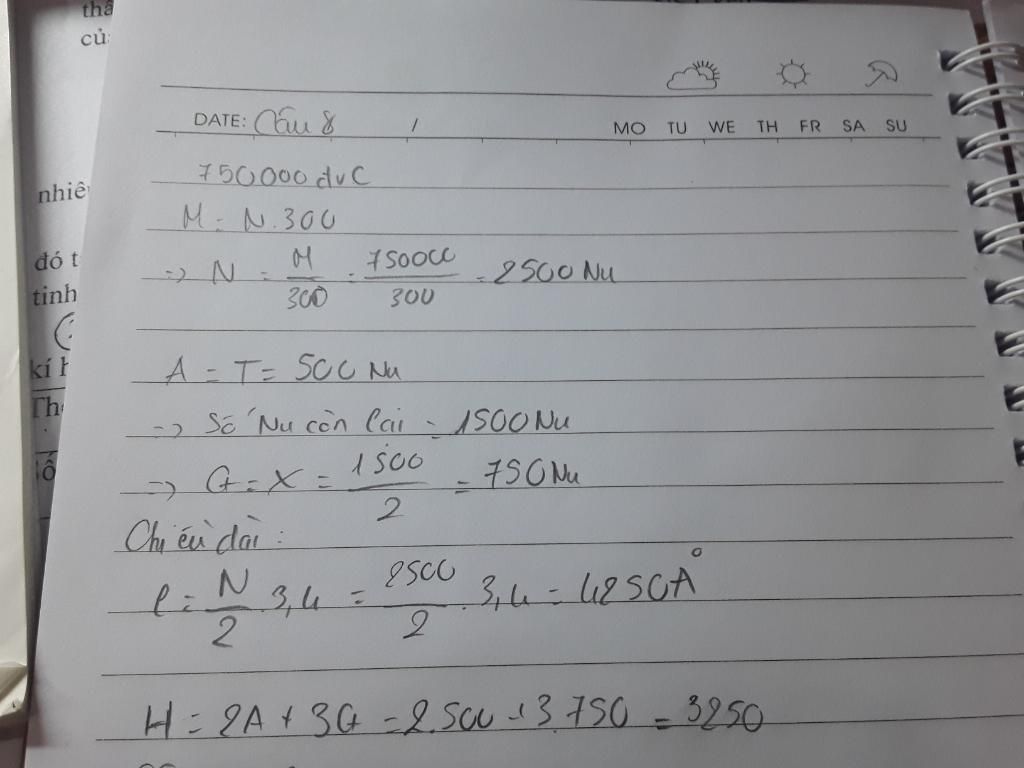 thầ
củ
DATE: Câu 8 /
MO TU WE TH FR SA SU
750000 đvC
nhiê
M = N.300
đó t
=> N = M/300 = 750000/300 = 2500 Nu
tinh
A = T = 500 Nu
kí h
Th
=> Số Nu còn lại = 1500 Nu
=> G = X = 1500/2 = 750 Nu
Chiều dài:
l = N/2 . 3,4 = 2500/2 . 3,4 = 4250 Å
H = 2A + 3G = 2.500 + 3.750 = 3250